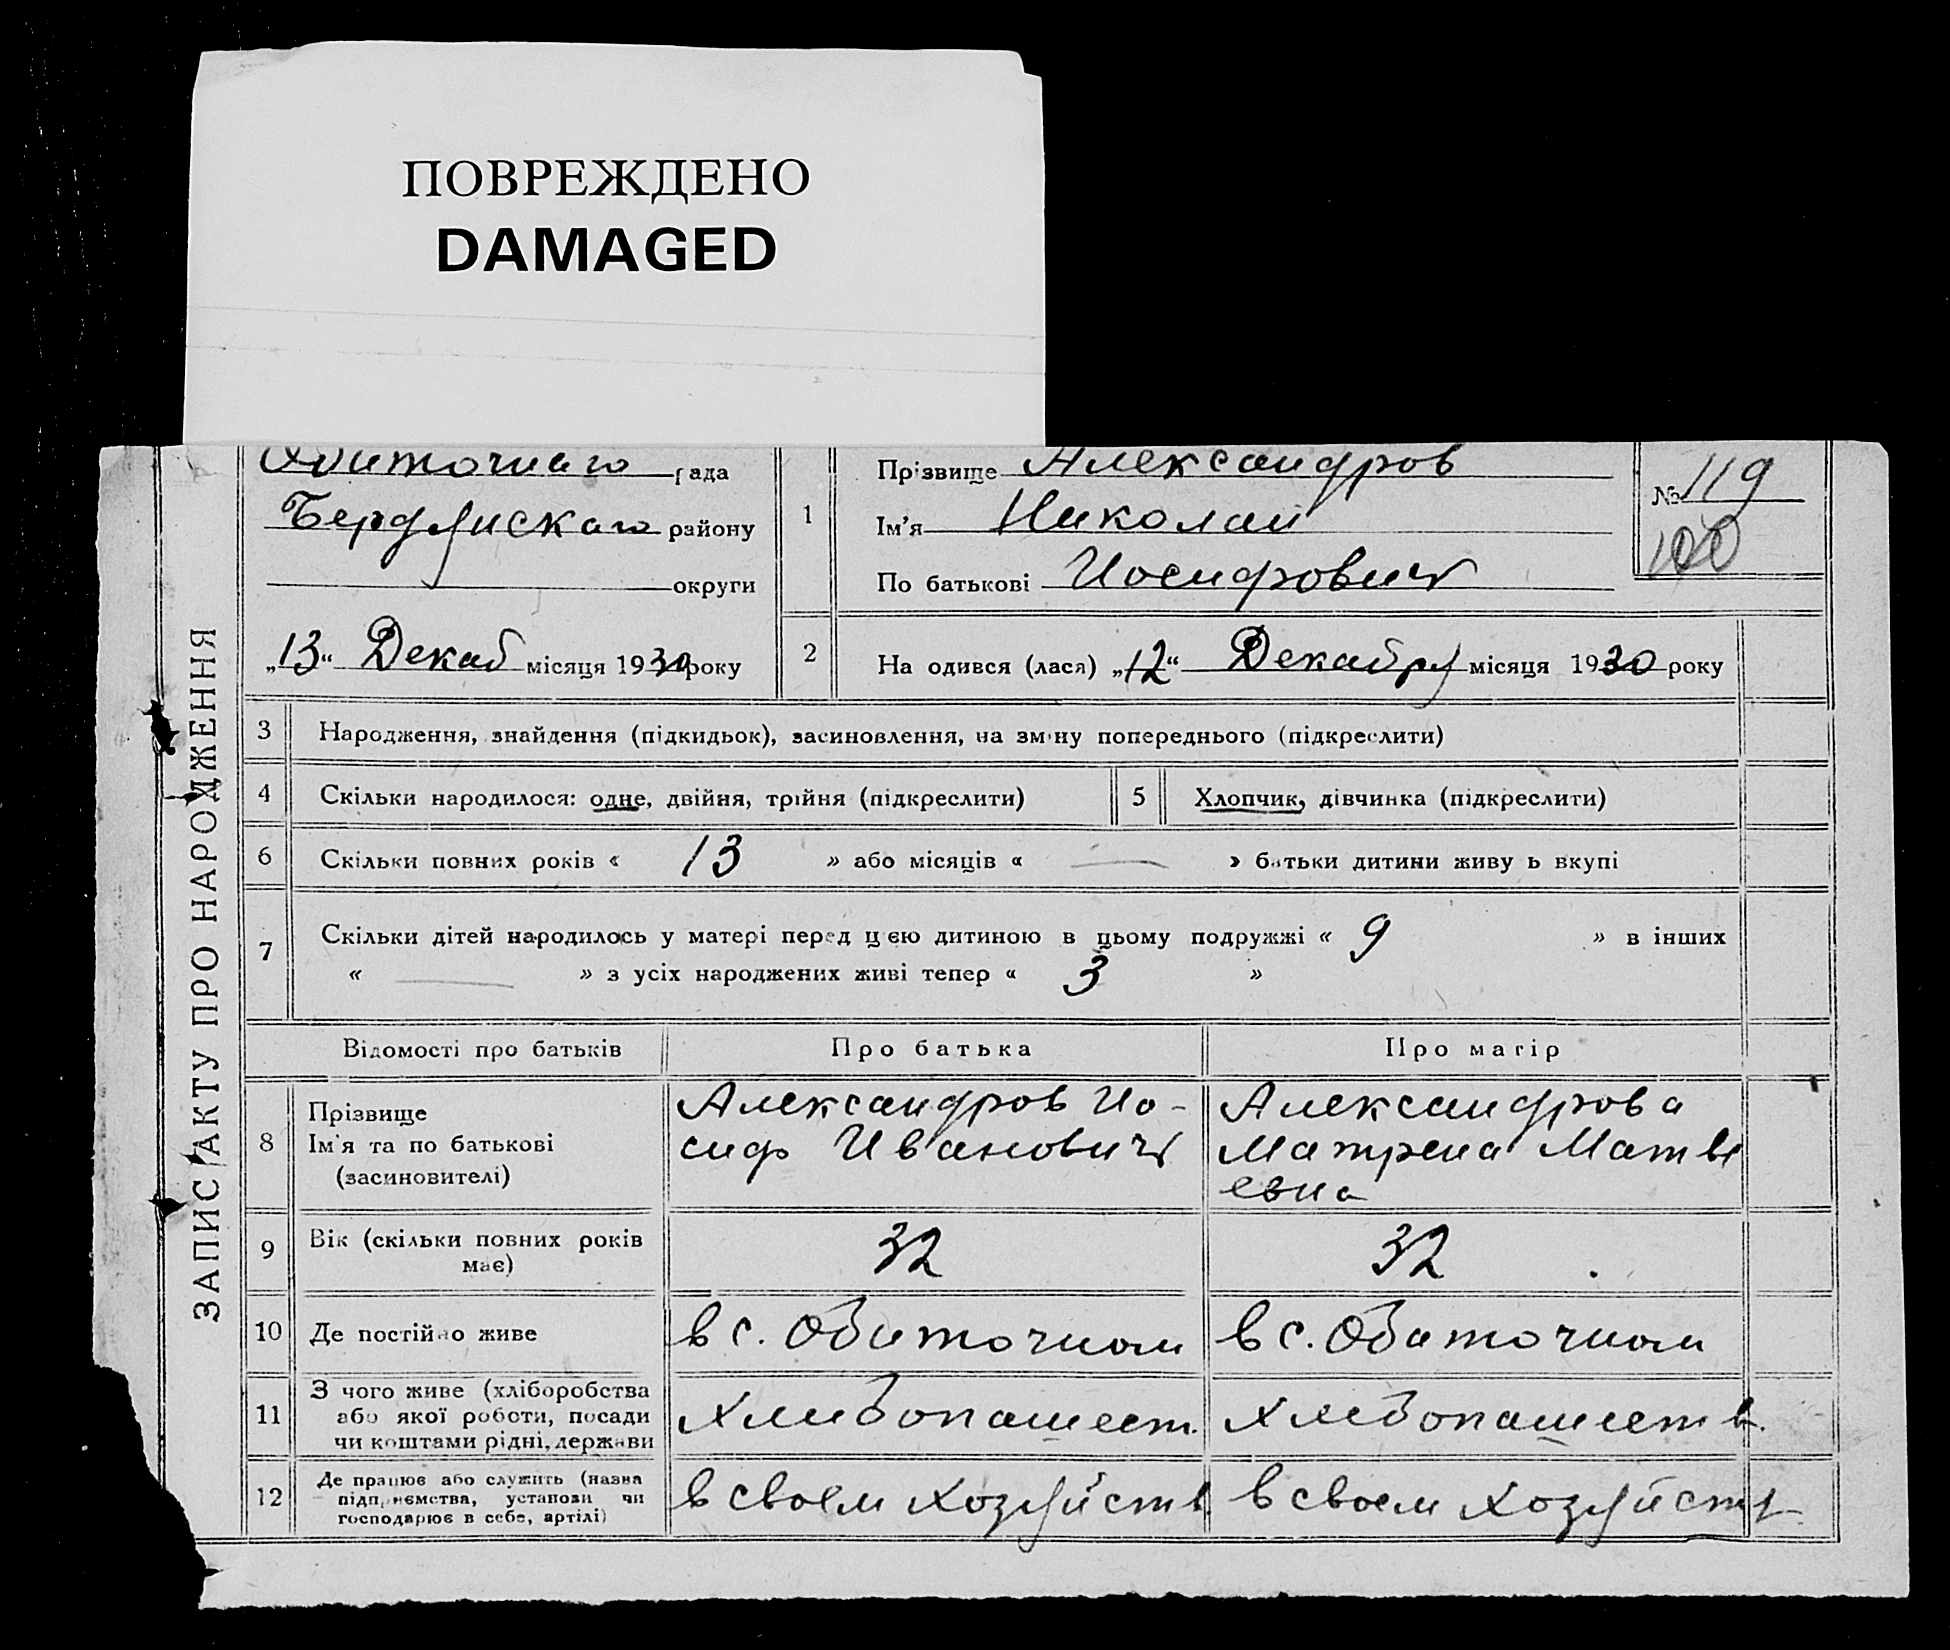 ПОВРЕЖДЕНО
DAMAGED
ЗАПИС АКТУ ПРО НАРОДЖЕННЯ
Обиточнаго рада
Бердянскаго району
округи
„13“ Декаб місяця 1930 року
1
Прізвище Александров
Ім'я Николай
По батькові Иосифович
№ 119
100
2 На одився (лася) „12“ Декабря місяця 1930 року
3 Народження, знайдення (підкидьок), засиновлення, на зміну попереднього (підкреслити)
4 Скільки народилося: одне, двійня, трійня (підкреслити) 5 Хлопчик, дівчинка (підкреслити)
6 Скільки повних років « 13 » або місяців « — » батьки дитини живу ь вкупі
7 Скільки дітей народилось у матері перед цією дитиною в цьому подружжі « 9 » в інших
« — » з усіх народжених живі тепер « 3 »
Відомості про батьків Про батька Про матір
8 Прізвище
Ім'я та по батькові
(засиновителі)
Александров Ио-
сиф Иванович
Александрова
Матрена Матве
евна
9 Вік (скільки повних років
має)
32 32
10 Де постійно живе в с. Обиточном в с. Обиточном
11 З чого живе (хліборобства
або якої роботи, посади
чи коштами рідні, держави
Хлибопашест. Хлебопашеств.
12 Де працює або служить (назва
підприємства, установи чи
господарює в себе, артілі)
в своем хозяйств в своем хозяйст